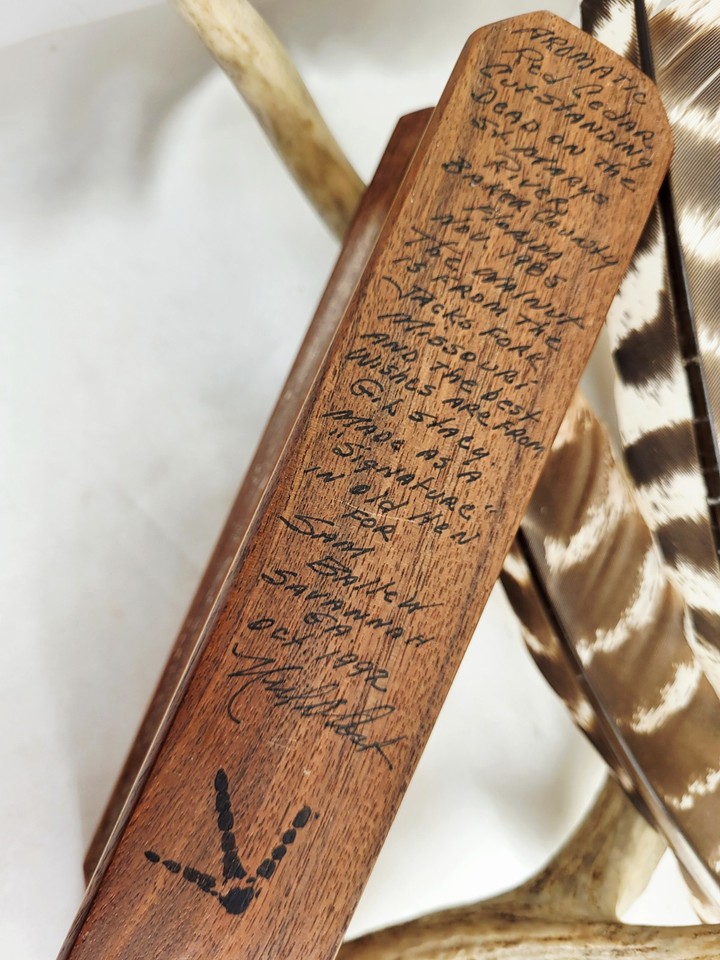 AROMATIC
Red Cedar
OUTSTANDING
DEAD ON THE
ST. MARYS
RIVER
BAKER COUNTY
FLORIDA
NOV 1985
THE WALNUT
IS FROM THE
JACKS FORK
MISSOURI
AND THE BEST
WISHES ARE FROM
Gil STACY.
MADE AS A
"SIGNATURE"
IN Old HEN
FOR
SAM
BALLEW
SAVANNAH
GA
OCT 1992